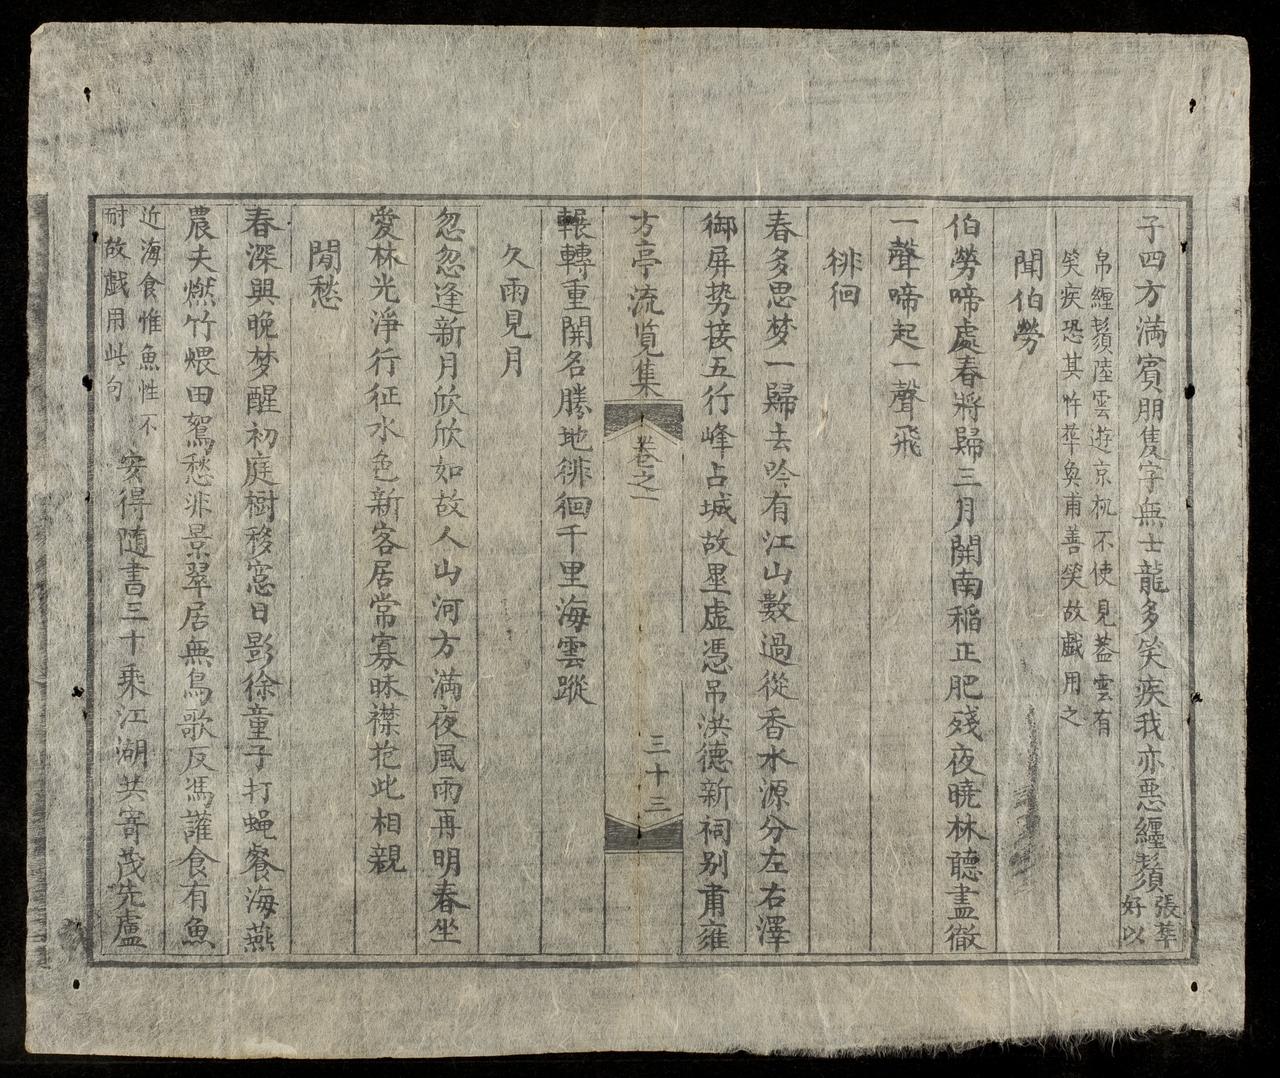 子四方満賓朋隻字無士龍多笑疾我亦悪纒鬚張華好以
帛纒鬚陸雲逰京机不使見盖雲有
笑疾恐其忤華奐甫善笑故戯用之
聞伯勞
伯勞啼處春將歸三月開南稲正肥残夜曉林聽盡徹
一聲啼起一聲飛
徘徊
春多思梦一歸去吟有江山數過從香水源分左右澤
御屏势接五行峰占城故壘虚憑吊洪德新祠别肅雍
方亭流览集
卷之一
三十三
輾轉重開名勝地徘徊千里海雲蹤
久雨見月
忽忽逢新月欣欣如故人山河方満夜風雨再明春坐
愛林光淨行征水色新客居常寡昧襟抱此相親
閒愁
春深興晚梦醒初庭樹移窓日影徐童子打蝇餐海燕
農夫燃竹煨田鴽愁非景翠居無鳥歌反馮讙食有魚
近海食惟魚性不
耐故戯用此句
安得随書三十乘江湖共寄茂先廬